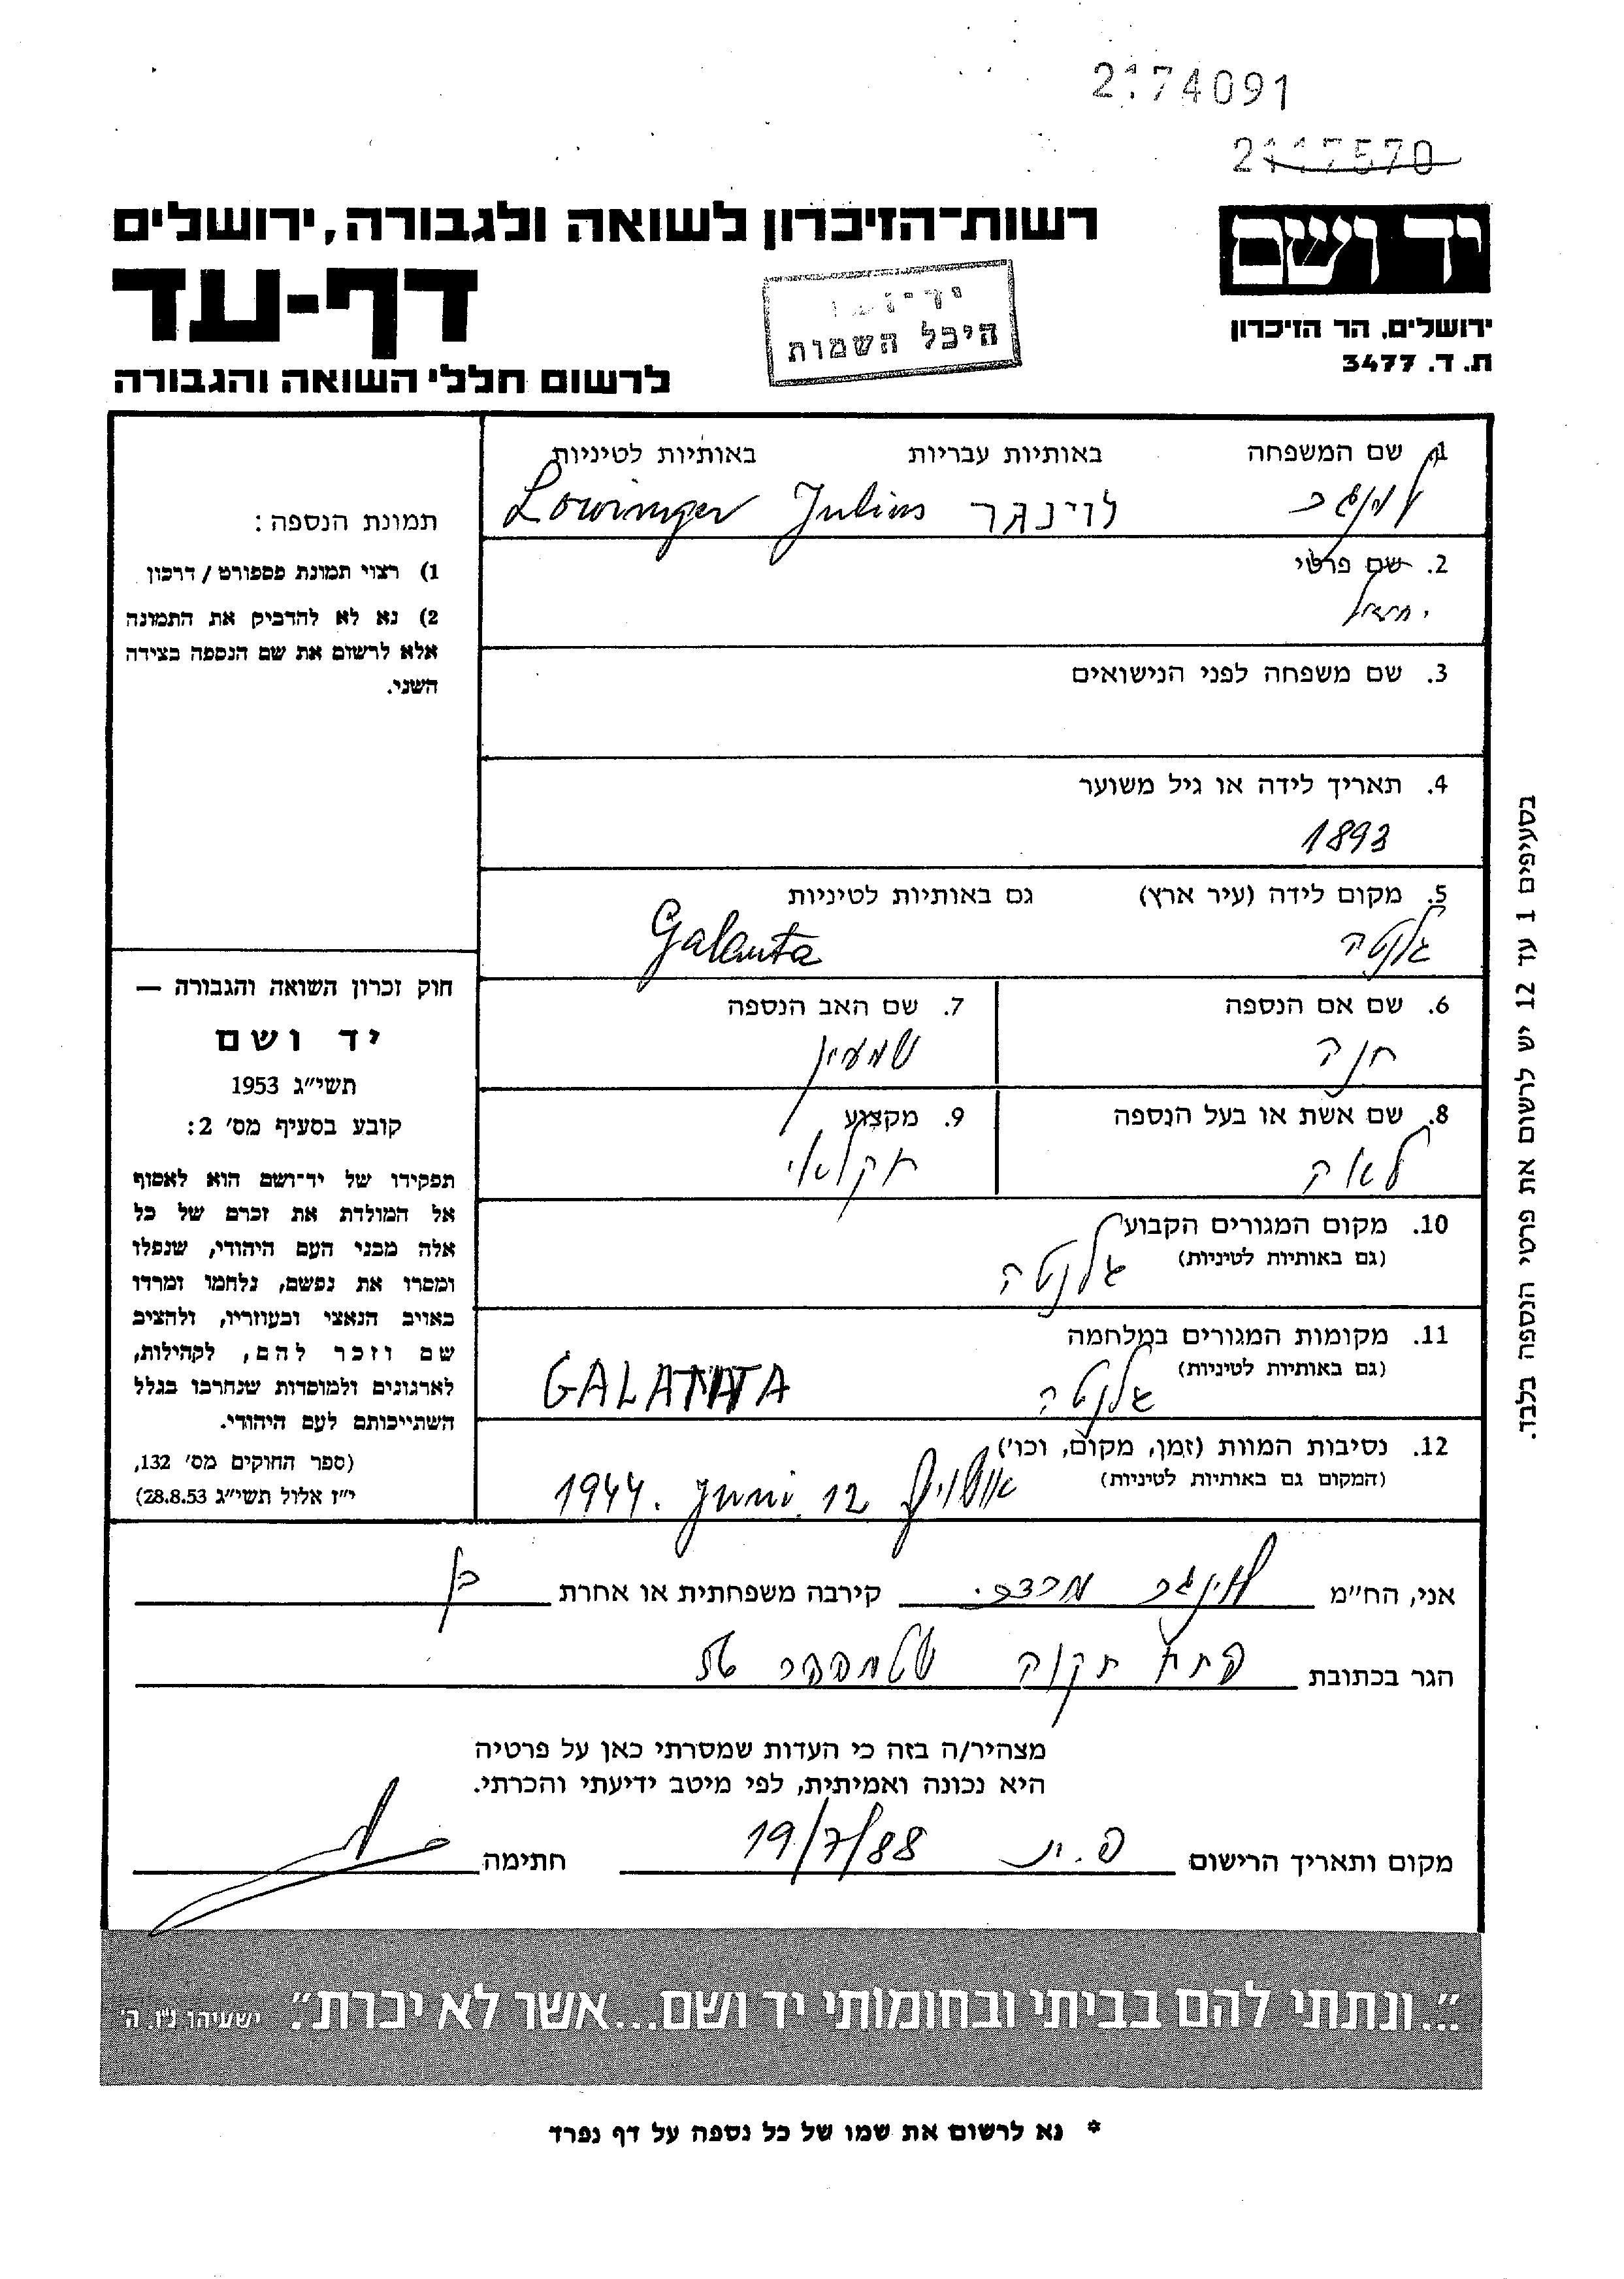 2174091
2117570
יד ושם
ירושלים, הר הזיכרון
ת. ד. 3477
רשות־הזיכרון לשואה ולגבורה, ירושלים
דף-עד
לרשום חללי השואה והגבורה
היכל השמות
1. שם המשפחה באותיות עבריות באותיות לטיניות
לוינגר לוינגר Julius Lowinger
2. שם פרטי
3. שם משפחה לפני הנישואים
4. תאריך לידה או גיל משוער
1893
5. מקום לידה (עיר ארץ) גם באותיות לטיניות
גלנטה Galanta
6. שם אם הנספה
חנה
7. שם האב הנספה
שמעון
8. שם אשת או בעל הנספה
לאה
9. מקצוע
חקלאי
10. מקום המגורים הקבוע
(גם באותיות לטיניות)
גלנטה
11. מקומות המגורים במלחמה
(גם באותיות לטיניות)
גלנטה GALANTA
12. נסיבות המוות (זמן, מקום, וכו')
(המקום גם באותיות לטיניות)
אושויץ 12 Juni 1944.
תמונת הנספה:
1) רצוי תמונת פספורט / דרכון
2) נא לא להדביק את התמונה
אלא לרשום את שם הנספה בצידה
השני.
חוק זכרון השואה והגבורה —
יד ושם
תשי"ג 1953
קובע בסעיף מס' 2:
תפקידו של יד־ושם הוא לאסוף
אל המולדת את זכרם של כל
אלה מבני העם היהודי, שנפלו
ומסרו את נפשם, נלחמו ומרדו
באויב הנאצי ובעוזריו, ולהציב
שם וזכר להם, לקהילות,
לארגונים ולמוסדות שנחרבו בגלל
השתייכותם לעם היהודי.
(ספר החוקים מס' 132,
י"ז אלול תשי"ג 28.8.53)
בסעיפים 1 עד 12 יש לרשום את פרטי הנספה בלבד.
אני, הח"מ לוינגר מרדכי קירבה משפחתית או אחרת בן
הגר בכתובת פתח תקוה שטמפפר
מצהיר/ה בזה כי העדות שמסרתי כאן על פרטיה
היא נכונה ואמיתית, לפי מיטב ידיעתי והכרתי.
מקום ותאריך הרישום פ.ת 19/7/88 חתימה
"...ונתתי להם בביתי ובחומותי יד ושם...אשר לא יכרת". ישעיהו נ"ו, ה'
* נא לרשום את שמו של כל נספה על דף נפרד